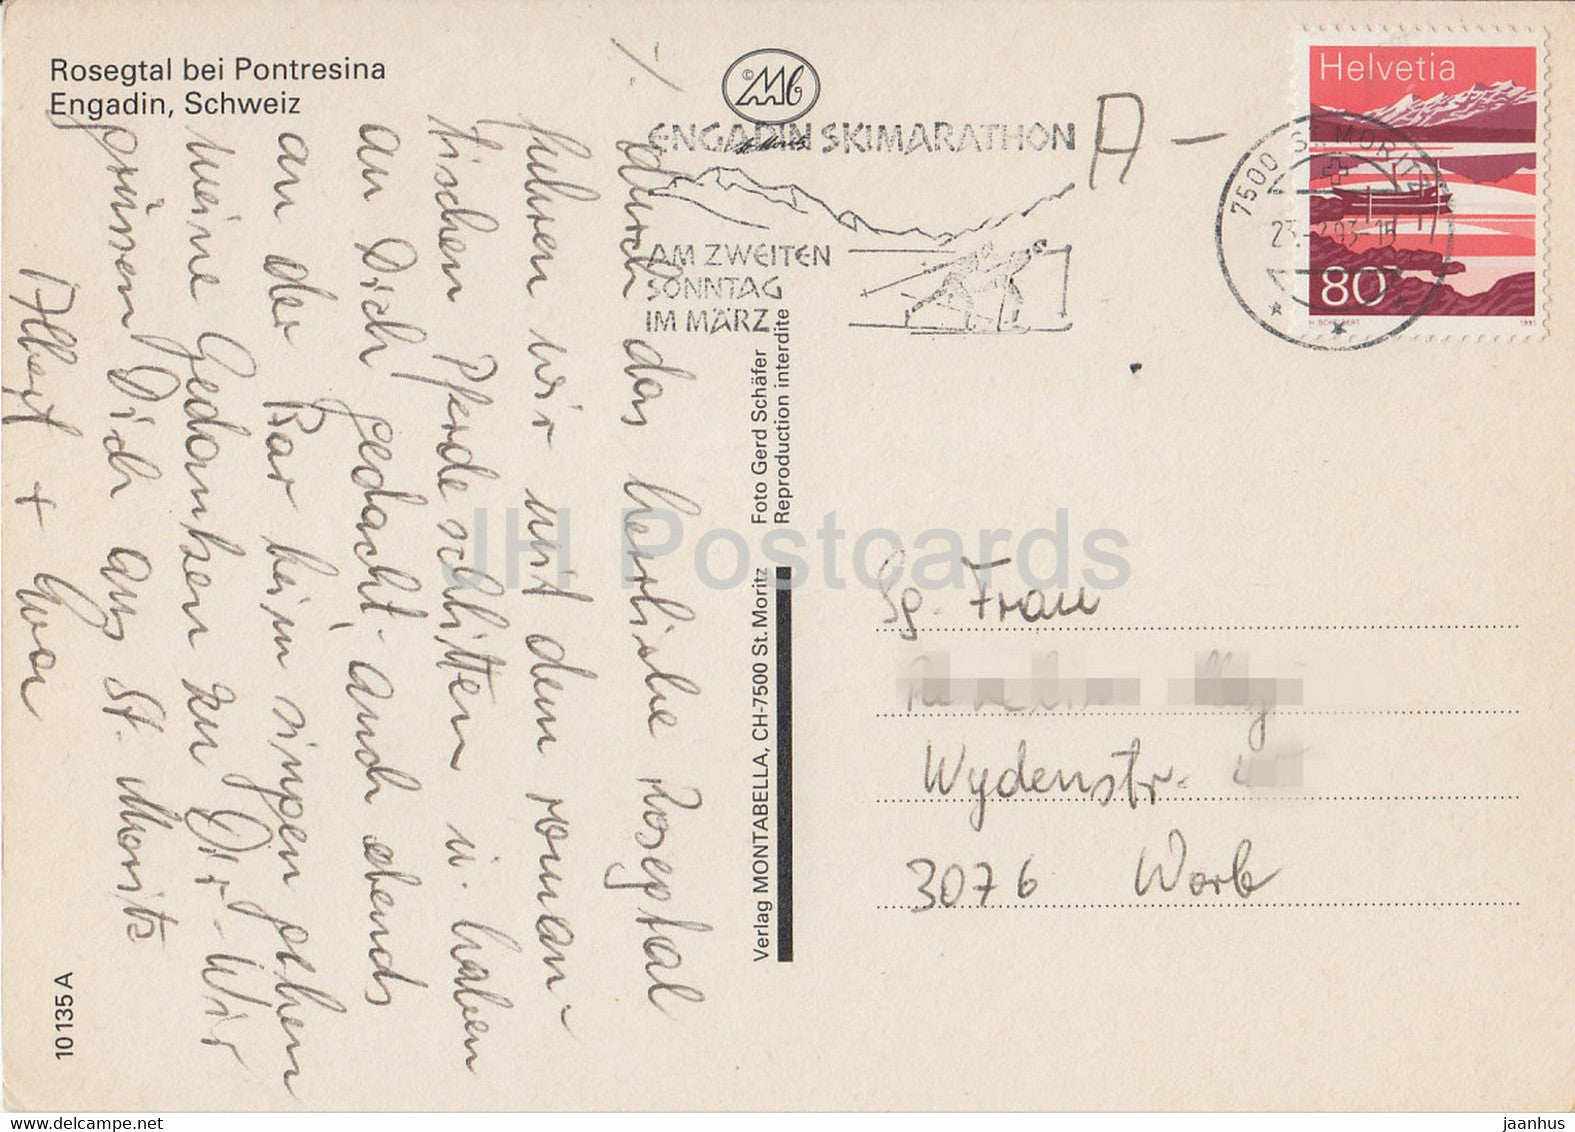 Rosegtal bei Pontresina
Engadin, Schweiz
©Mb
St. Moritz
ENGADIN SKIMARATHON
AM ZWEITEN
SONNTAG
IM MÄRZ
A-
Helvetia
80
H. SCHELBERT
7500 ST. MORITZ
1
./.
durch das herrliche Rosegtal
fuhren wir mit dem roman-
tischen Pferdeschlitten u. haben
an Dich gedacht, auch abends
an der Bar beim singen gehen
meine Gedanken zu Dir - Wir
grüssen Dich aus St. Moritz
Albert +
Foto Gerd Schäfer
Reproduction interdite
Verlag MONTABELLA, CH-7500 St. Moritz
10135 A
Sg. Frau
Wydenstr.
3076 Worb
JH Postcards
delcampe.net
jaanhus